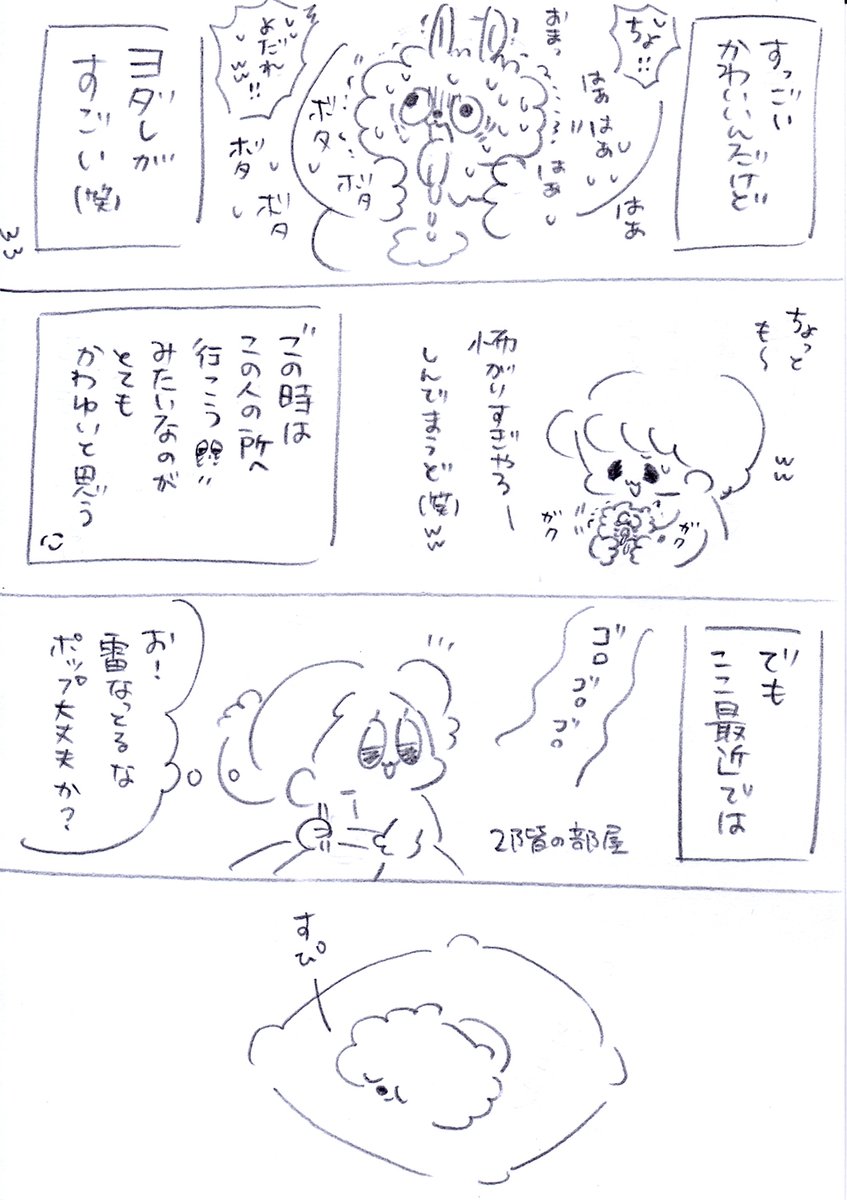 すっごい
かわいいんだけど
ちょ!!
おまっ
はぁ
はぁ
はぁ
はぁ
よだれ
ww!!
ボタ
ボタ
ボタ
ボタ
ヨダレが
すごい(笑)
ww
ちょっと
も〜
ww
怖がりすぎやろー
しんでまうど(笑)ww
ガク
ガク
この時は
この人の所へ
行こう!!
みたいなのが
とても
かわゆいと思う
でも
ここ最近では
ゴロ
ゴロ
ゴロ
2階の部屋
お!
雷なっとるな
ポップ大丈夫か?
すぴ。